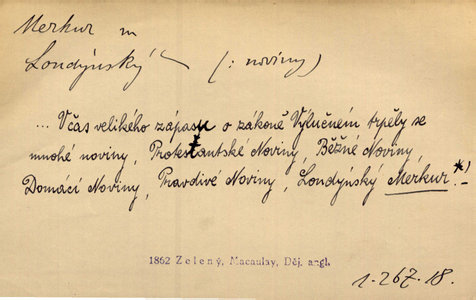 Merkur m
Londýnský (: noviny)
... Včas velikého zápasu o zákoně Výlučném trpěly se
mnohé noviny, Protestantské Noviny, Běžné Noviny,
Domácí Noviny, Pravdivé Noviny, Londýnský Merkur.*!–
1862 Zelený, Macaulay, Děj. angl.
1.267.18.